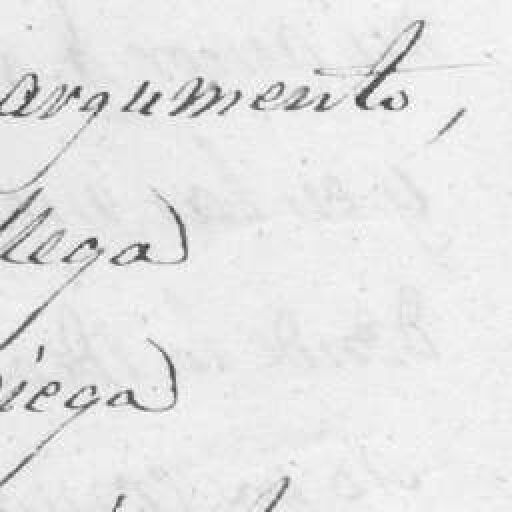 argumento,
llega
iega